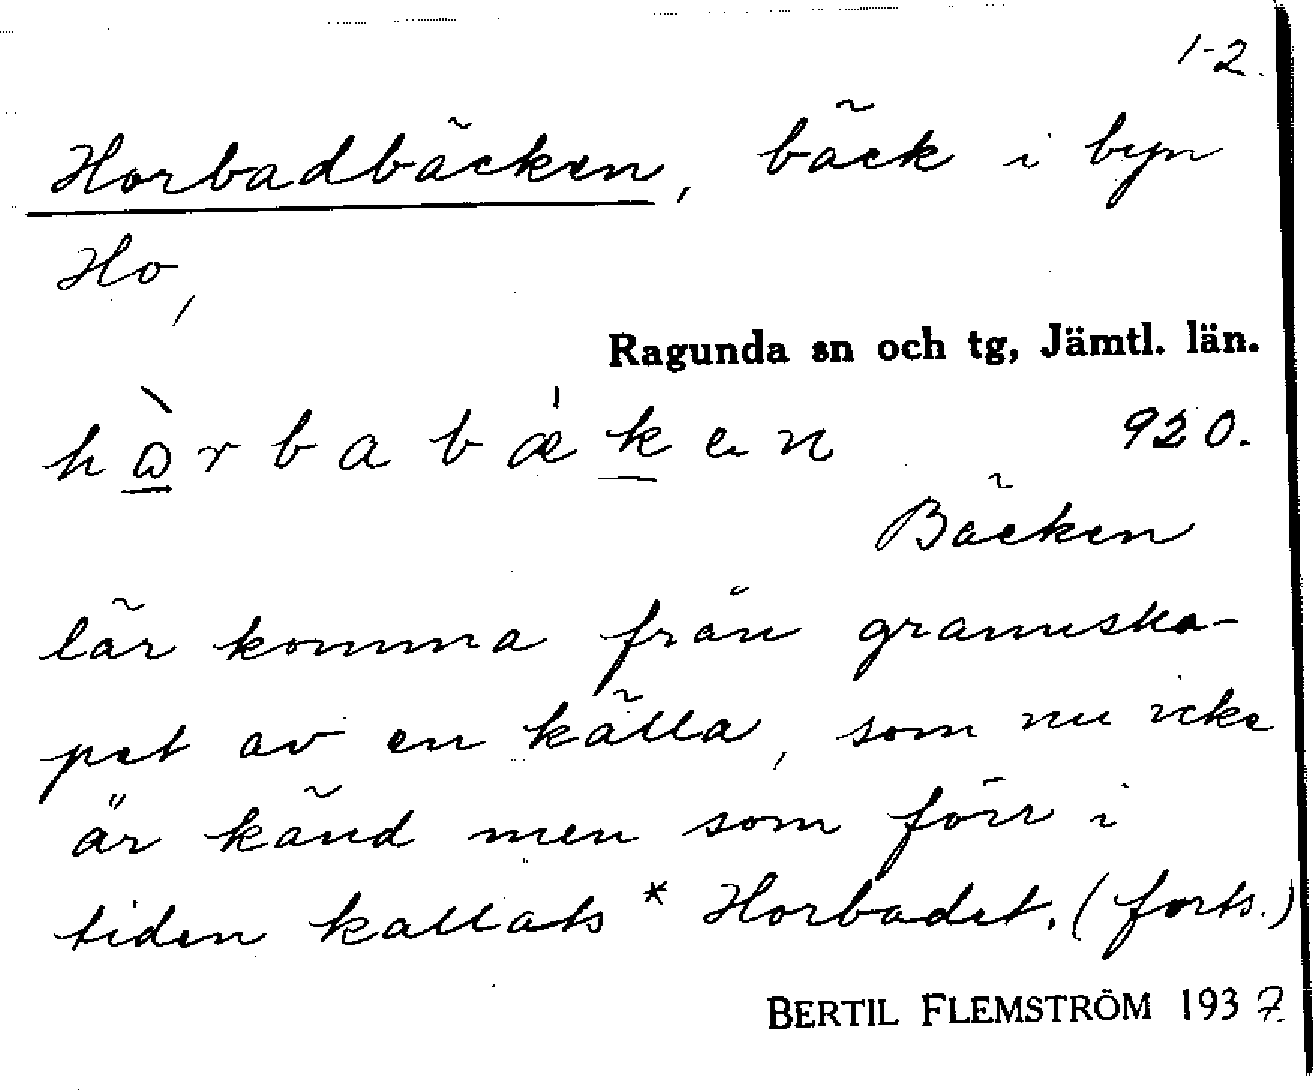 1-2.
Horbadbäcken, bäck i byn
Ho,
Ragunda sn och tg, Jämtl. län.
hàrbabǽken 920.
Bäcken
lär komma från grannska-
pet av en källa, som nu icke
är känd men som förr i
tiden kallats * Horbadet. (forts.)
BERTIL FLEMSTRÖM 1937